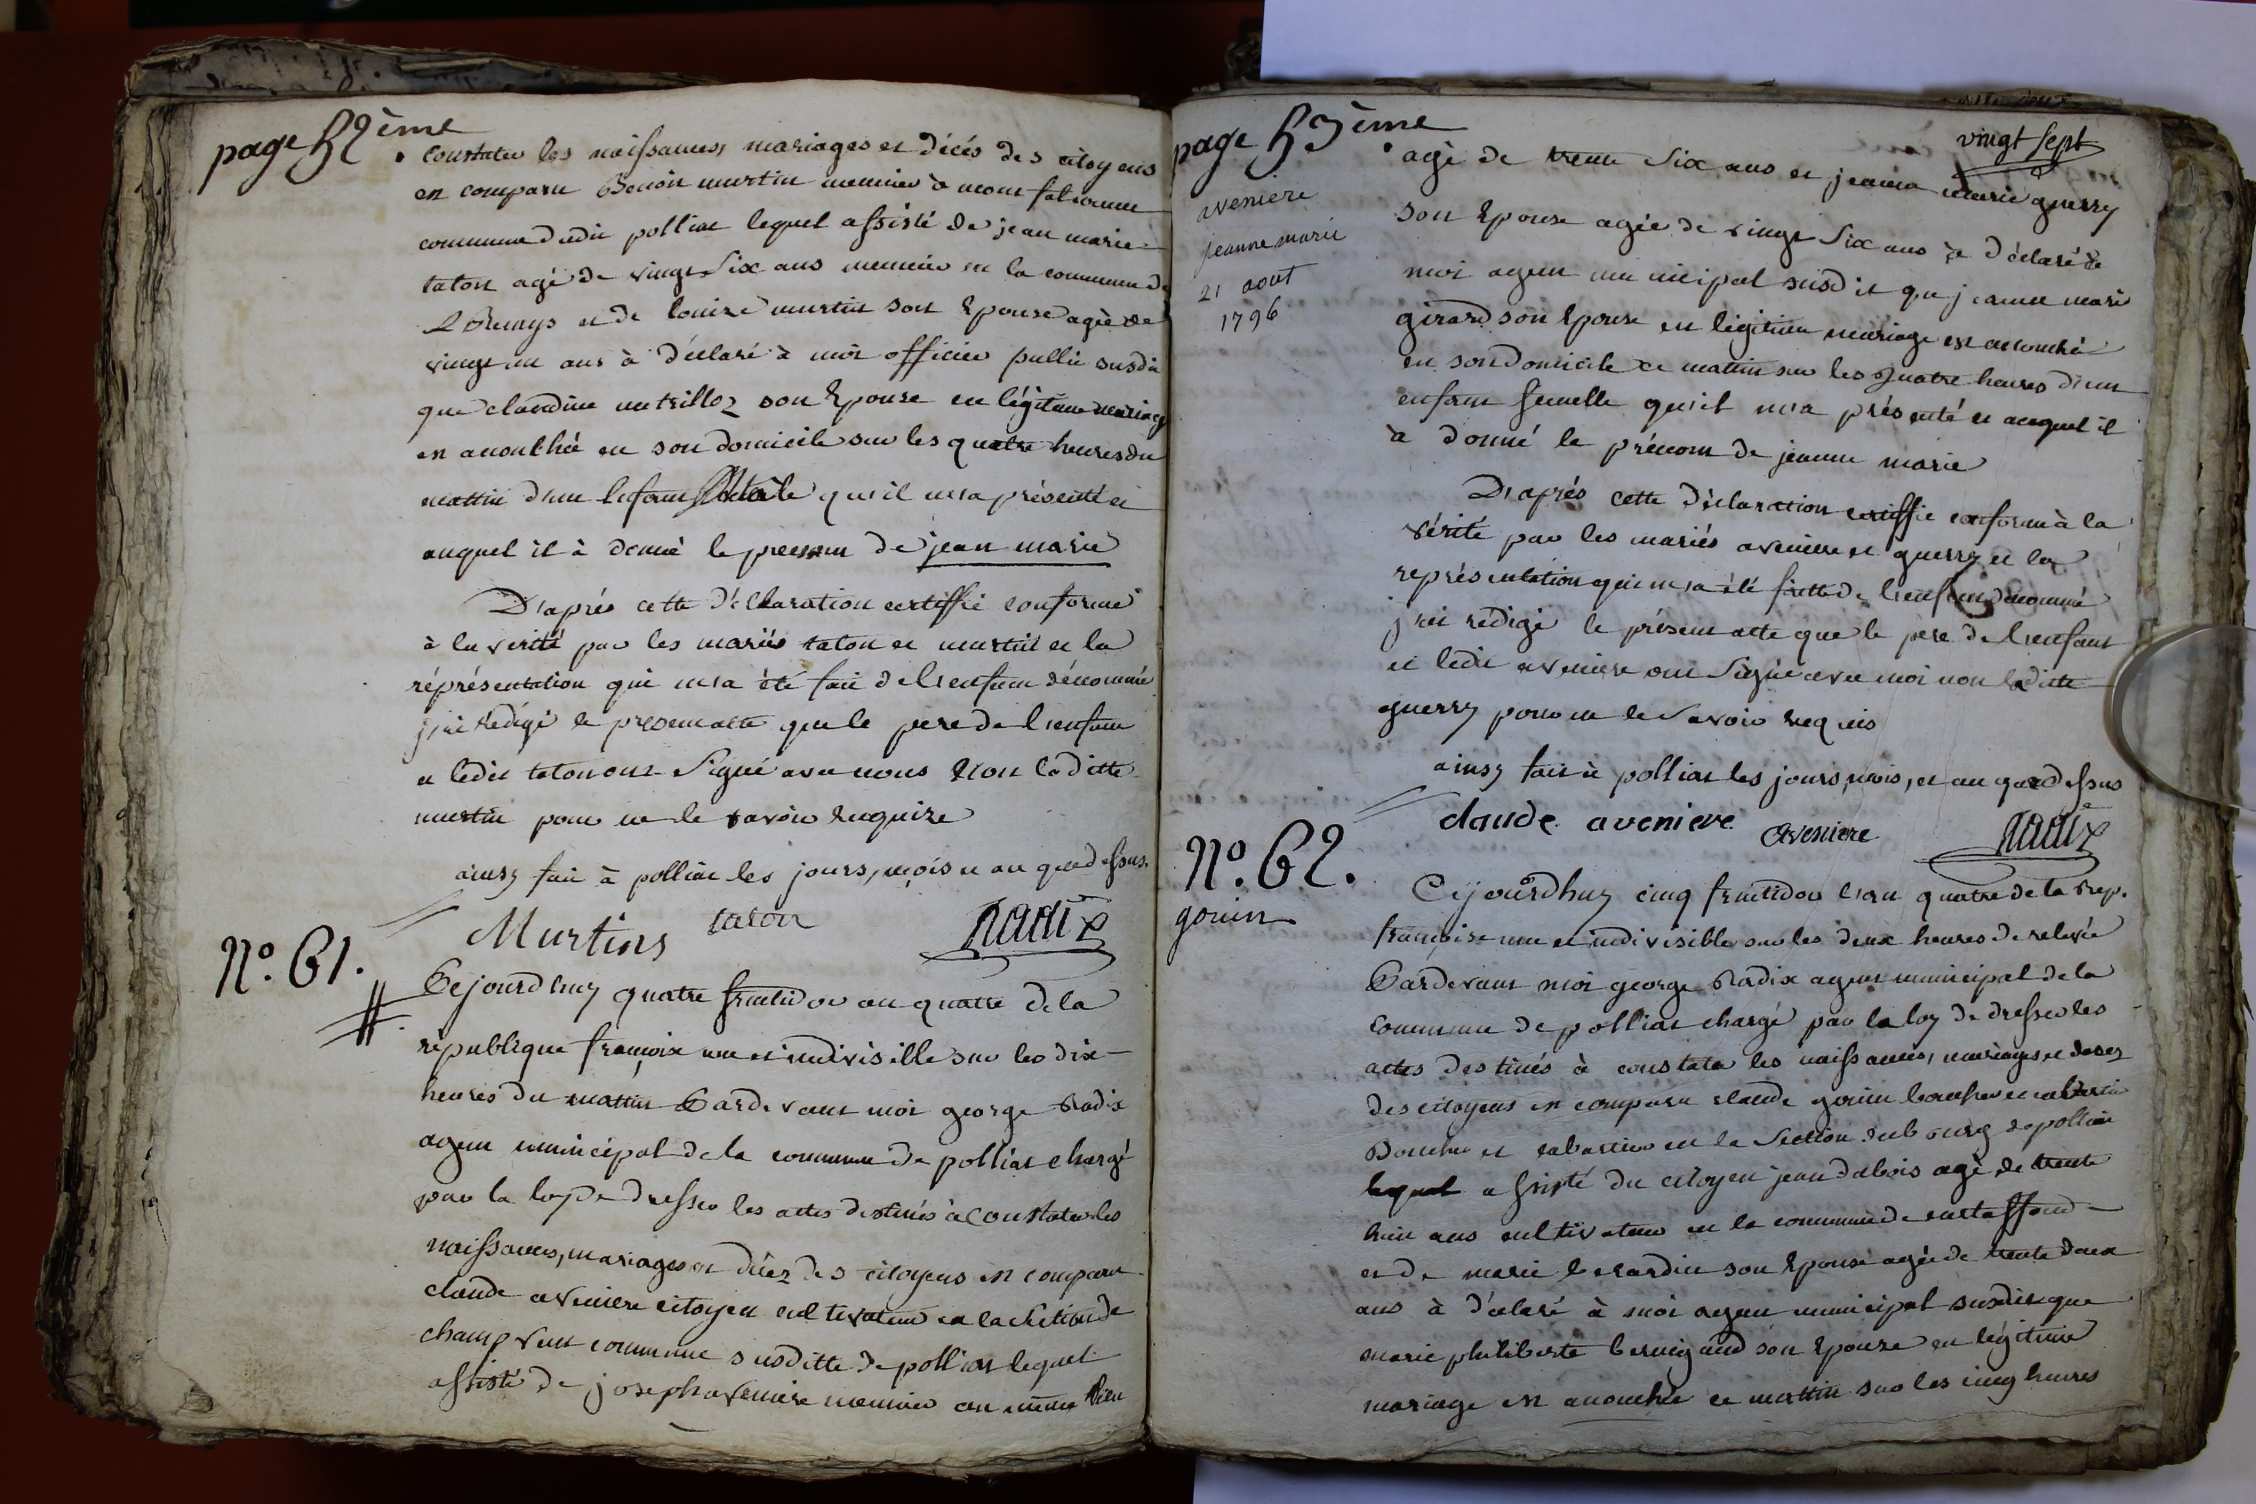 page 52ème
constater les naissances, mariages et décés des citoyens
est comparu Benoit murtin meunier à mont
commune dudit polliat lequel assisté de jean marie
taton agé de vingt six ans meunier en la commune de
et de louize murtin son Epouse agée de
vingt un ans à déclaré à moi officier public susdit
que claudine son Epouse en légitime mariage
est accouchée en son domicile sur les quatre heures du
mattin d'un Enfant qu'il m'a présenté et
auquel il à donné le prenom de jean marie
D'aprés cette déclaration certiffié conforme
à la verité par les mariés taton et murtin et la
réprésentation qui m'a été fait de l'enfant dénommé
j'ai rédigé le present acte que le pere de l'enfant
et ledit taton ont Signé avec nous Non laditte
murtin pour ne le savoir requize
ainsy fait à polliat les jours, mois et an que dessus.
Murtins taton Radix
N°. 61.
Cejourdhuy quatre fructidor an quatre de la
république françoise une et indivisible sur les dix
heures du mattin Pardevant moi george Radix
agent municipal de la commune de polliat chargé
par la loy de dresser les actes destinés à constater les
naissances, mariages et décez des citoyens est comparu
claude aveniere citoyen cultivateur en la section de
champ vent commune susditte de polliat lequel
assisté de joseph aveniere meunier au même lieu
page 53ème
vingt sept
aveniere
jeanne marie
21 aout
1796
agé de trente Six ans et jeanne marie guerry
son Epouse agée de vingt Six ans à déclaré à
moi agent municipal susdit que jeanne marie
girard son Epouse en légitime mariage est accouchée
en son domicile ce mattin sur les quatre heures d'un
enfant femelle qu'il m'a présenté et auquel il
à donné le prénom de jeanne marie
D'aprés cette déclaration certiffié conforme à la
vérité par les mariés aveniere et guerry et la
représentation qui m'a été faitte de l'enfant dénommé
j'ai rédigé le présent acte que le pere de l'enfant
et ledit aveniere ont Signé avec moi non laditte
guerry pour ne le Savoir requis
ainsy fait à polliat les jours, mois, et an que dessus
claude aveniere aveniere Radix
N°. 62.
gouin
Cejourdhuy cinq fructidor l'an quatre de la rep.
françoise une et indivisible sur les deux heures de relevée
Pardevant moi george Radix agent municipal de la
commune de polliat chargé par la loy de dresser les
actes destinés à constater les naissances, mariages et décez
des citoyens est comparu claude gouin boucher et cabartier
Boucher et cabartier en la Section du bourg de polliat
lequel assisté du citoyen jean dubois agé de trente
huit ans cultivateur en la commune de
et de marie son Epouse agée de trente deux
ans à déclaré à moi agent municipal susdit que
marie philiberte son Epouze en légitime
mariage est accouchée ce mattin sur les cinq heures